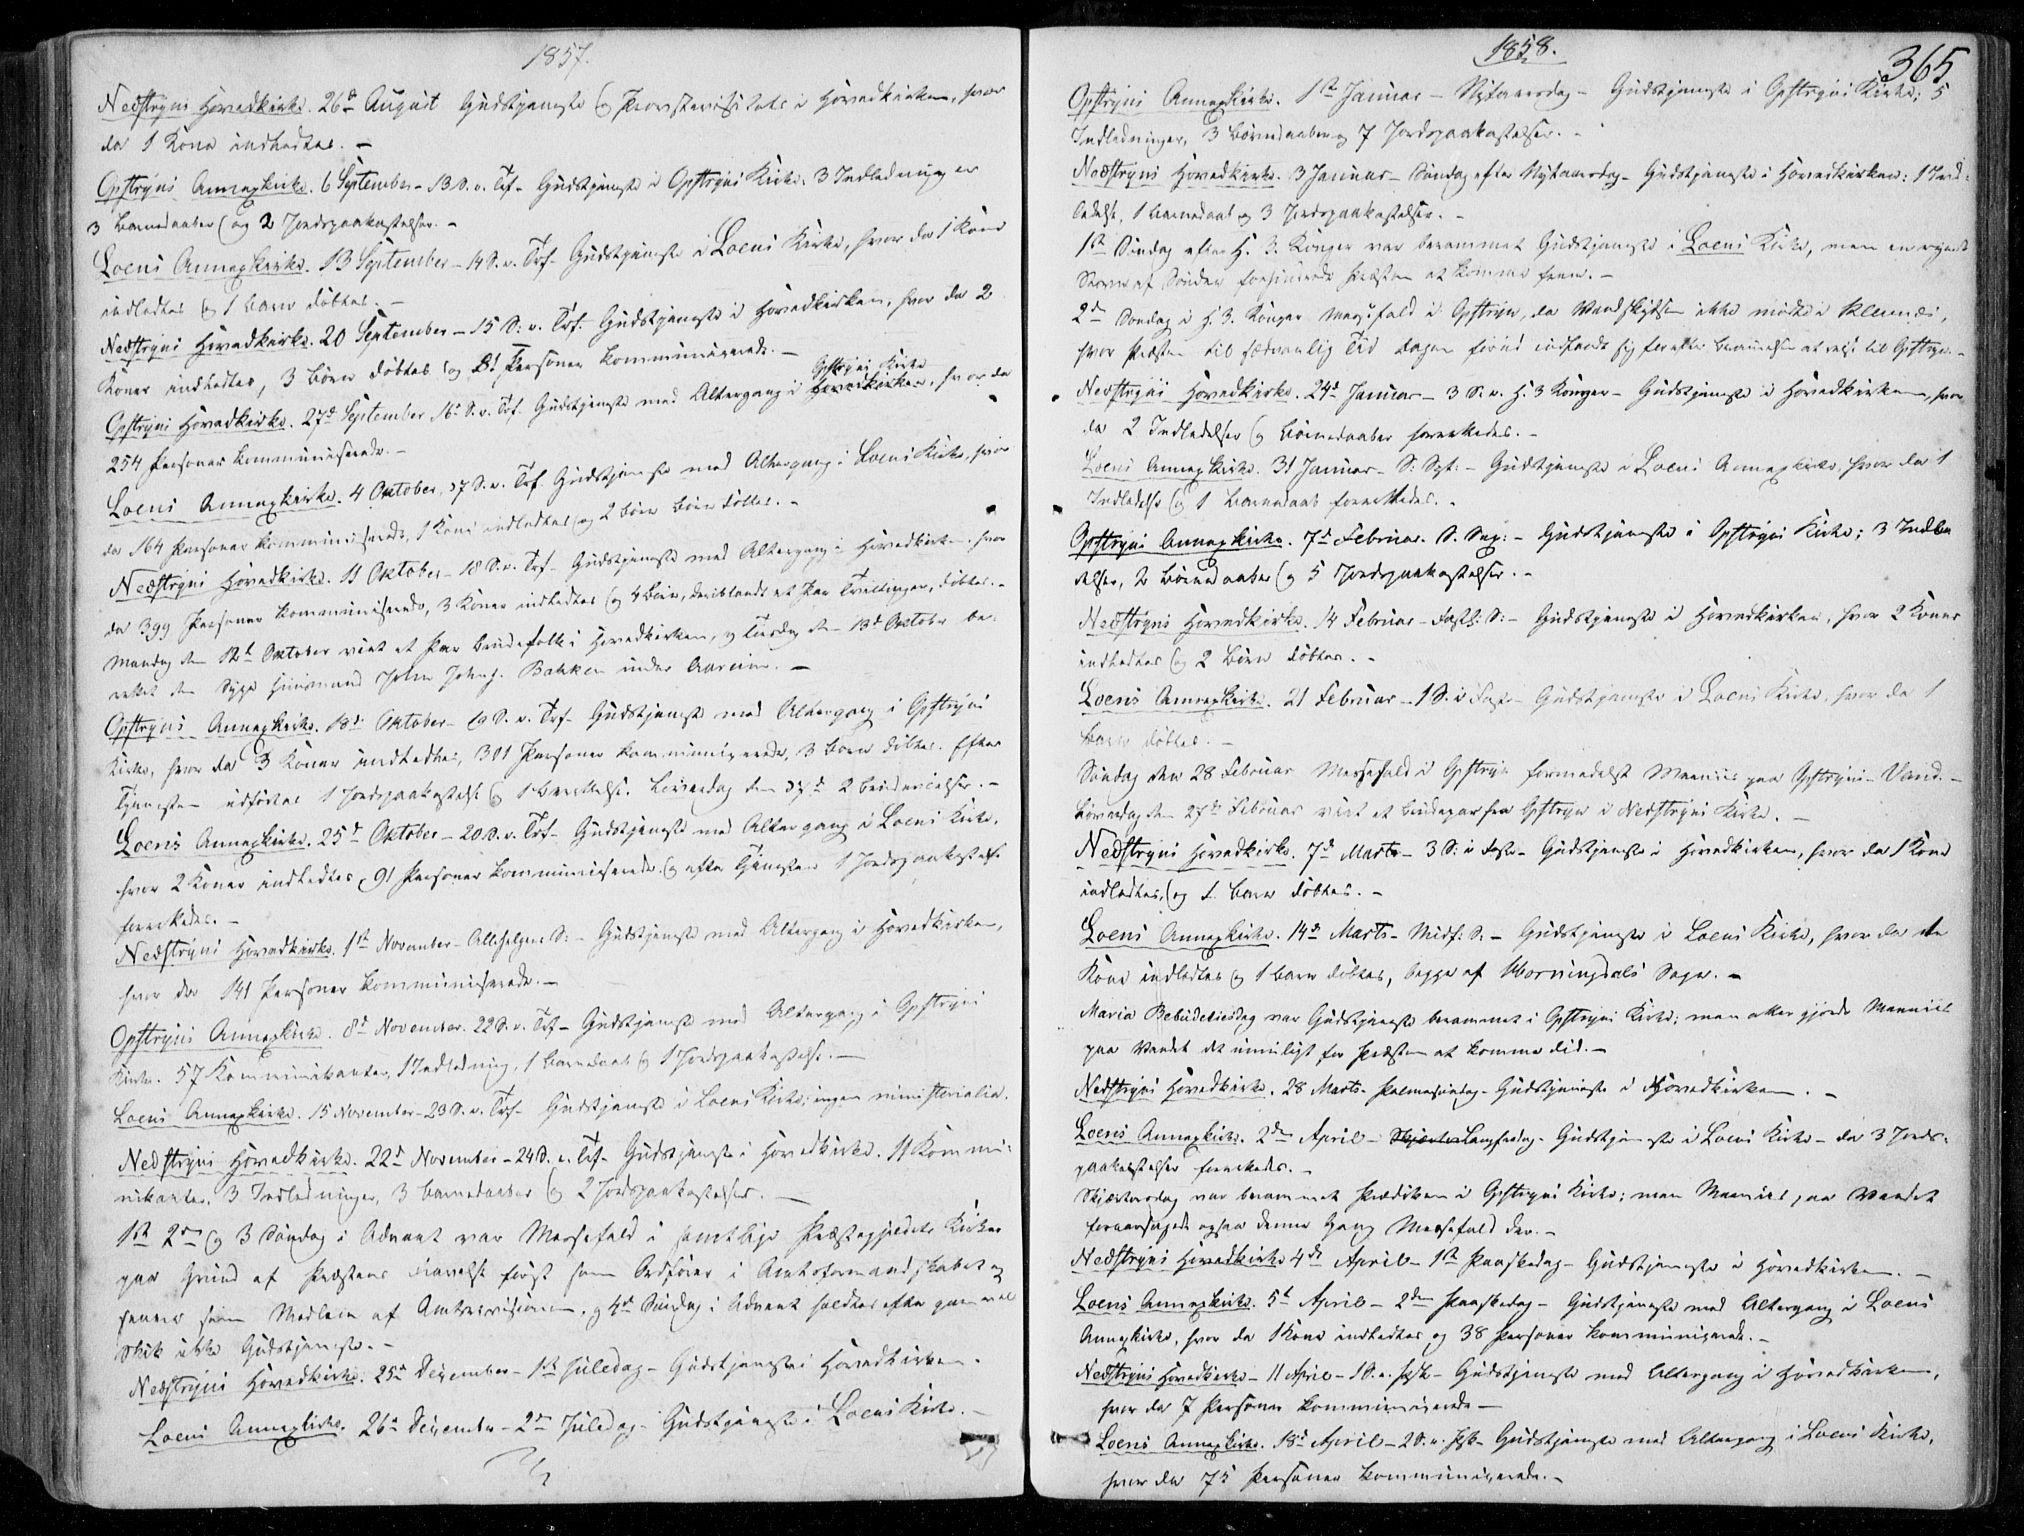 1857.
Nedstryns Hovedkirke. 26de August Gudstjeneste og Provstevisitats i Hovedkirken, hvor
da 1 Kone indledtes. –
Opstryns Annexkirke. 6 September – 13 S. e. Tref. – Gudstjeneste i Opstryns Kirke. 3 Indledninger
3 Barnedaaber og 2 Jordspaakastelser. –
Loens Annexkirke. 13 September – 14 S. e. Tref. Gudstjeneste i Loens Kirke, hvor da 1 Kone
indledtes og 1 Barn døbtes. –
Nedstryns Hovedkirke. 20 September – 15 S. e. Tref. Gudstjeneste i Hovedkirken, hvor da 2
Koner indledtes, 3 Børn døbtes og Personer kommunicerede. –
Opstryns Kirke
Opstryns Hovedkirke. 27de September 16de S. e. Tref. Gudstjeneste med Altergang i Hovedkirken, hvor da
254 Personer kommunicerede. –
Loens Annexkirke. 4 Oktober, 17 S. e. Tref. Gudstjeneste med Altergang i Loens Kirke, hvor
da 164 Personer kommunicerede, 1 Kone indledtes og 2 Børn Børn døbtes. –
Nedstryns Hovedkirke. 11 Oktober – 18 S. e. Tref – Gudstjeneste med Altergang i Hovedkirken, hvor
da 399 Personer kommunicerede, 3 Koner indledtes og 4 Børn, deriblandt et Par Tvillinger, døbtes. –
Mandag den 12te Oktober viet et Par Brudefolk i Hovedkirken, og Tirsdag den 13de Oktober be-
rettet den syge Huusmand John Johns. Bakken under Aareim. –
Opstryns Annexkirke. 18de Oktober – 19 S. e. Tref – Gudstjeneste med Altergang i Opstryns
Kirke, hvor da 3 Koner indledtes, 301 Personer kommunicerede, 3 Børn døbtes. Efter
Tjenesten udførtes 1 Jordspaakastelse og 1 Berettelse. Løverdag den 17de 2 Brudevielser. –
Loens Annexkirke. 25de Oktober – 20 S. e. Tref – Gudstjeneste med Altergang i Loens Kirke,
hvor 2 Koner indledtes, 91 Personer kommunicerede og efter Tjenesten 1 Jordspaakastelse
forrettedes. –
Nedstryns Hovedkirke. 1ste November – Allehelgens S: – Gudstjeneste med Altergang i Hovedkirken,
hvor da 141 Personer kommunicerede. –
Opstryns Annexkirke. 8de November. 22 S. e. Tref – Gudstjeneste med Altergang i Opstryns
Kirke. 57 Kommunikanter, 1 Indledning, 1 Barnedaab og 1 Jordspaakastelse. –
Loens Annexkirke. 15 November – 23 S. e. Tref – Gudstjeneste i Loens Kirke; ingen ministerialia.
Nedstryns Hovedkirke. 22de November – 24 S. e. Tref – Gudstjeneste i Hovedkirke. 11 Kommu-
nikanter, 3 Indledninger, 3 Barnedaaber og 2 Jordspaakastelser. –
1ste 2den og 3 Søndag i Advent var Messefald i samtlige Præstegjeldets Kirker
paa Grund af Præstens Fravær først som Ordfører i Amtsformandskabet og
senere som Medlem af Amtsrevisionen, og 4de Søndag i Advent holdtes efter gammel
Skik ikke Gudstjeneste. –
Nedstryns Hovedkirke. 25de Dezember – 1ste Juledag – Gudstjeneste i Hovedkirken.
Loens Annexkirke. 26de Dezember – 2den Juledag – Gudstjeneste i Loens Kirke. –
1858.
365
Opstryns Annexkirke. 1ste Januar – Nytaarsdag – Gudstjeneste i Opstryns Kirke; 5
Indledninger, 3 Børnedaaber og 7 Jordspaakastelser. –
Nedstryns Hovedkirke. 3 Januar – Søndag efter Nytaarsdag – Gudstjeneste i Hovedkirken: 1 Ind-
ledelse, 1 Barnedaab og 3 Jordspaakastelser. –
1ste Søndag efter H. 3. Konger var berammet Gudstjeneste i Loens Kirke, men en rygende
Storm af Sønden forhindrede Præsten at komme frem. –
2den Søndag e. H. 3. Konger Messefald i Opstryn, da Vandskydsen ikke mødte i
hvor Præsten til sædvanlig Tid Dagen forud indfandt sig for efter Berammelse at reise til Opstryn. –
Nedstryns Hovedkirke. 24de Januar – 3 S. e. H. 3 Konger – Gudstjeneste i Hovedkirken, hvor
da 2 Indledelser og Børnedaaber forrettedes. –
Loens Annexkirke. 31 Januar – S: Spt: – Gudstjeneste i Loens Annexkirke, hvor da 1
Indledelse og 1 Barnedaab forrettedes. –
Opstryns Annexkirke. 7de Februar. S. Sex: – Gudstjeneste i Opstryns Kirke; 3 Indle-
delser, 2 Børnedaaber og 5 Jordspaakastelser. –
Nedstryns Hovedkirke. 14 Februar – Fastl: S: – Gudstjeneste i Hovedkirken, hvor 2 Koner
indledtes og 2 Børn døbtes. –
Loens Annexkirke. 21 Februar – 1 S. i Faste – Gudstjeneste i Loens Kirke, hvor da 1
Barn døbtes. –
Søndag den 28 Februar Messefald i Opstryn formedelst Meenis paa Opstryns-Vand. –
Løverdag den 27de Februar viet et Brudepar fra Opstryn i Nedstryns Kirke. –
Nedstryns Hovedkirke. 7de Marts – 3 S: i Faste – Gudstjeneste i Hovedkirken, hvor da 1 Kone
indledtes, og 1 Barn døbtes. –
Loens Annexkirke. 14de Marts – Midf: S: – Gudstjeneste i Loens Kirke, hvor da en
Kone indledtes og 1 Barn døbtes, begge af Horningdals Sogn. –
Maria Bebudelsesdag var Gudstjeneste berammet i Opstryns Kirke; men atter gjorde Meeniis
paa Vandet det umuligt for Præsten at komme did. –
Nedstryns Hovedkirke. 28 Marts – Palmesøndag – Gudstjeneste i Hovedkirken. –
Loens Annexkirke. 2den April – Langfredag – Gudstjeneste i Loens Kirke – da 3 Jords-
paakastelser forrettedes. –
Skjærtorsdag var berammet Prædiken i Opstryns Kirke; men Meeniis paa Vandet
foraarsagede ogsaa denne Gang Messefald der. –
Nedstryns Hovedkirke 4de April – 1ste Paaskedag – Gudstjeneste i Hovedkirken. –
Loens Annexkirke. 5te April – 2den Paaskedag – Gudstjeneste med Altergang i Loens
Annexkirke, hvor da 1 Kone indledtes og 38 Personer kommunicerede. –
Nedstryns Hovedkirke – 11 April – 1 S. e. Psk – Gudstjeneste med Altergang i Hovedkirken,
hvor da 7 Personer kommunicerede –
Loens Annexkirke. 18de April – 2 S. e. Psk – Gudstjeneste med Altergang i Loens Kirke,
hvor da 75 Personer kommunicerede. –